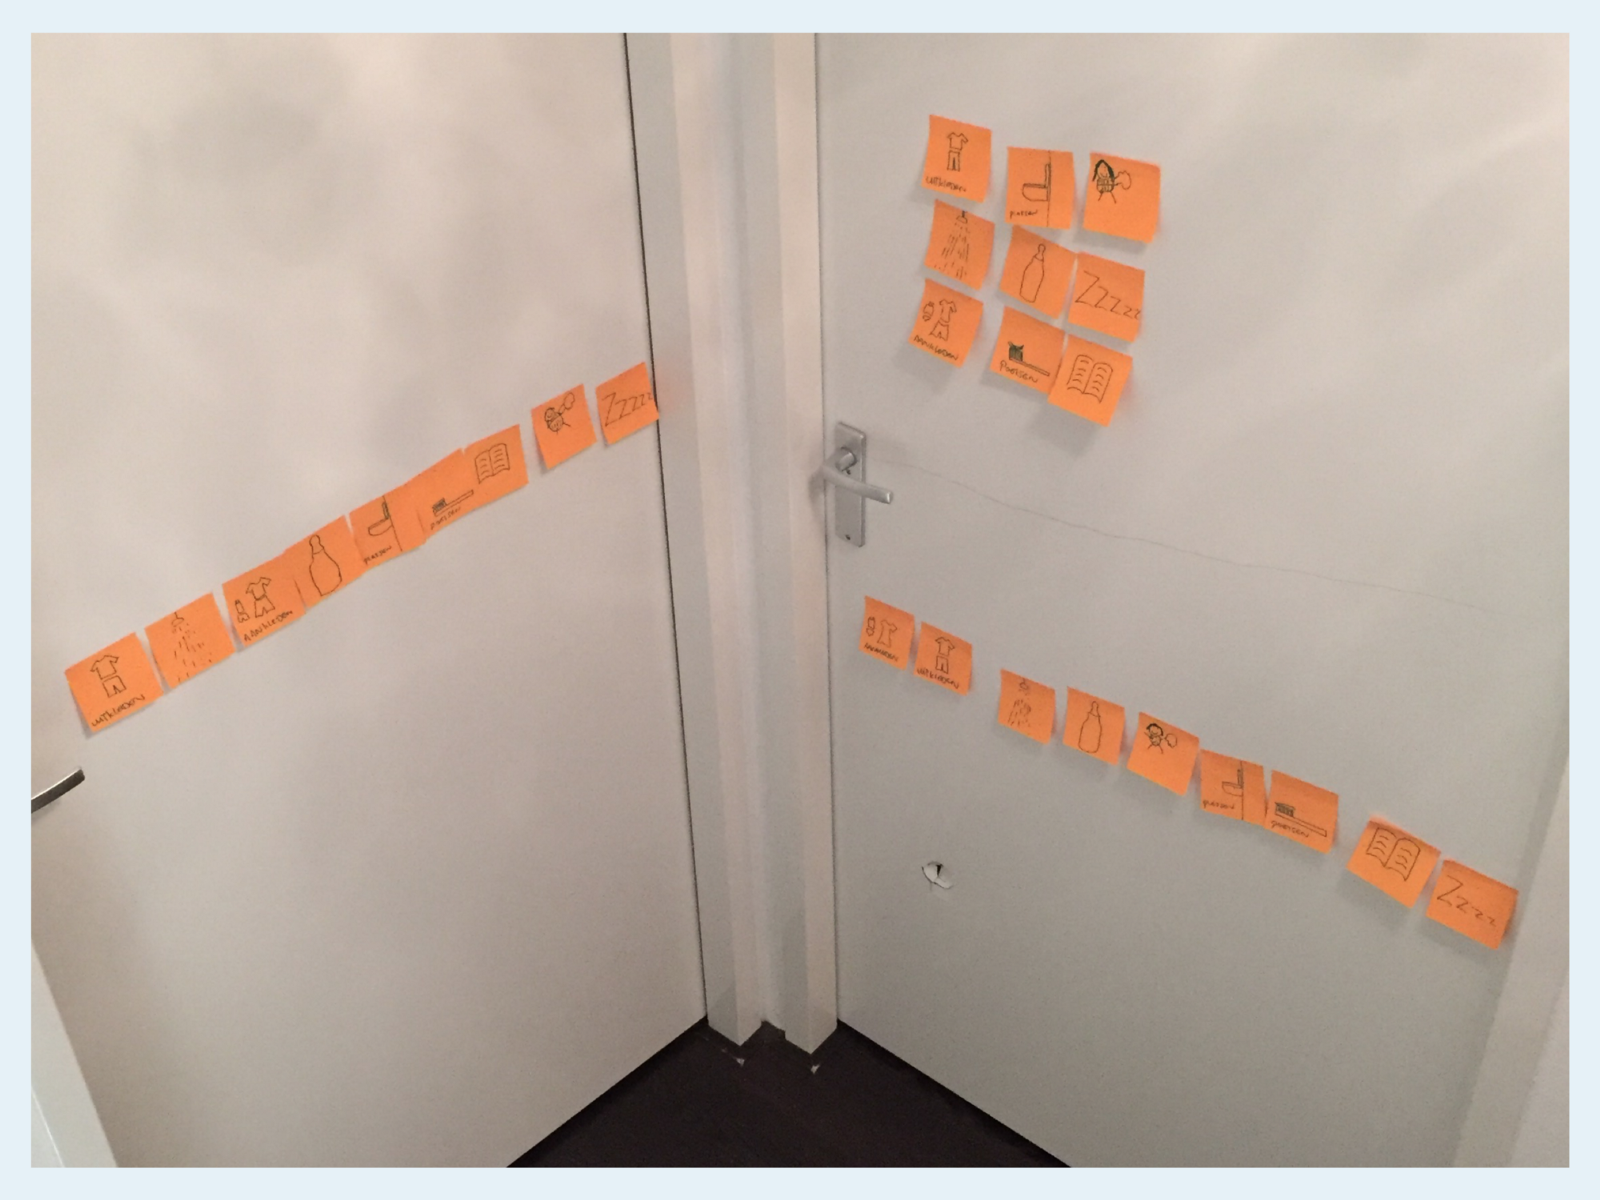 UITKLEDEN
AANKLEDEN
plassen
poetsen
Zzzzz
UITKLEDEN
plassen
Zzzzz
AANKLEDEN
POETSEN
AANKLEDEN
UITKLEDEN
plassen
poetsen
Zzzzz